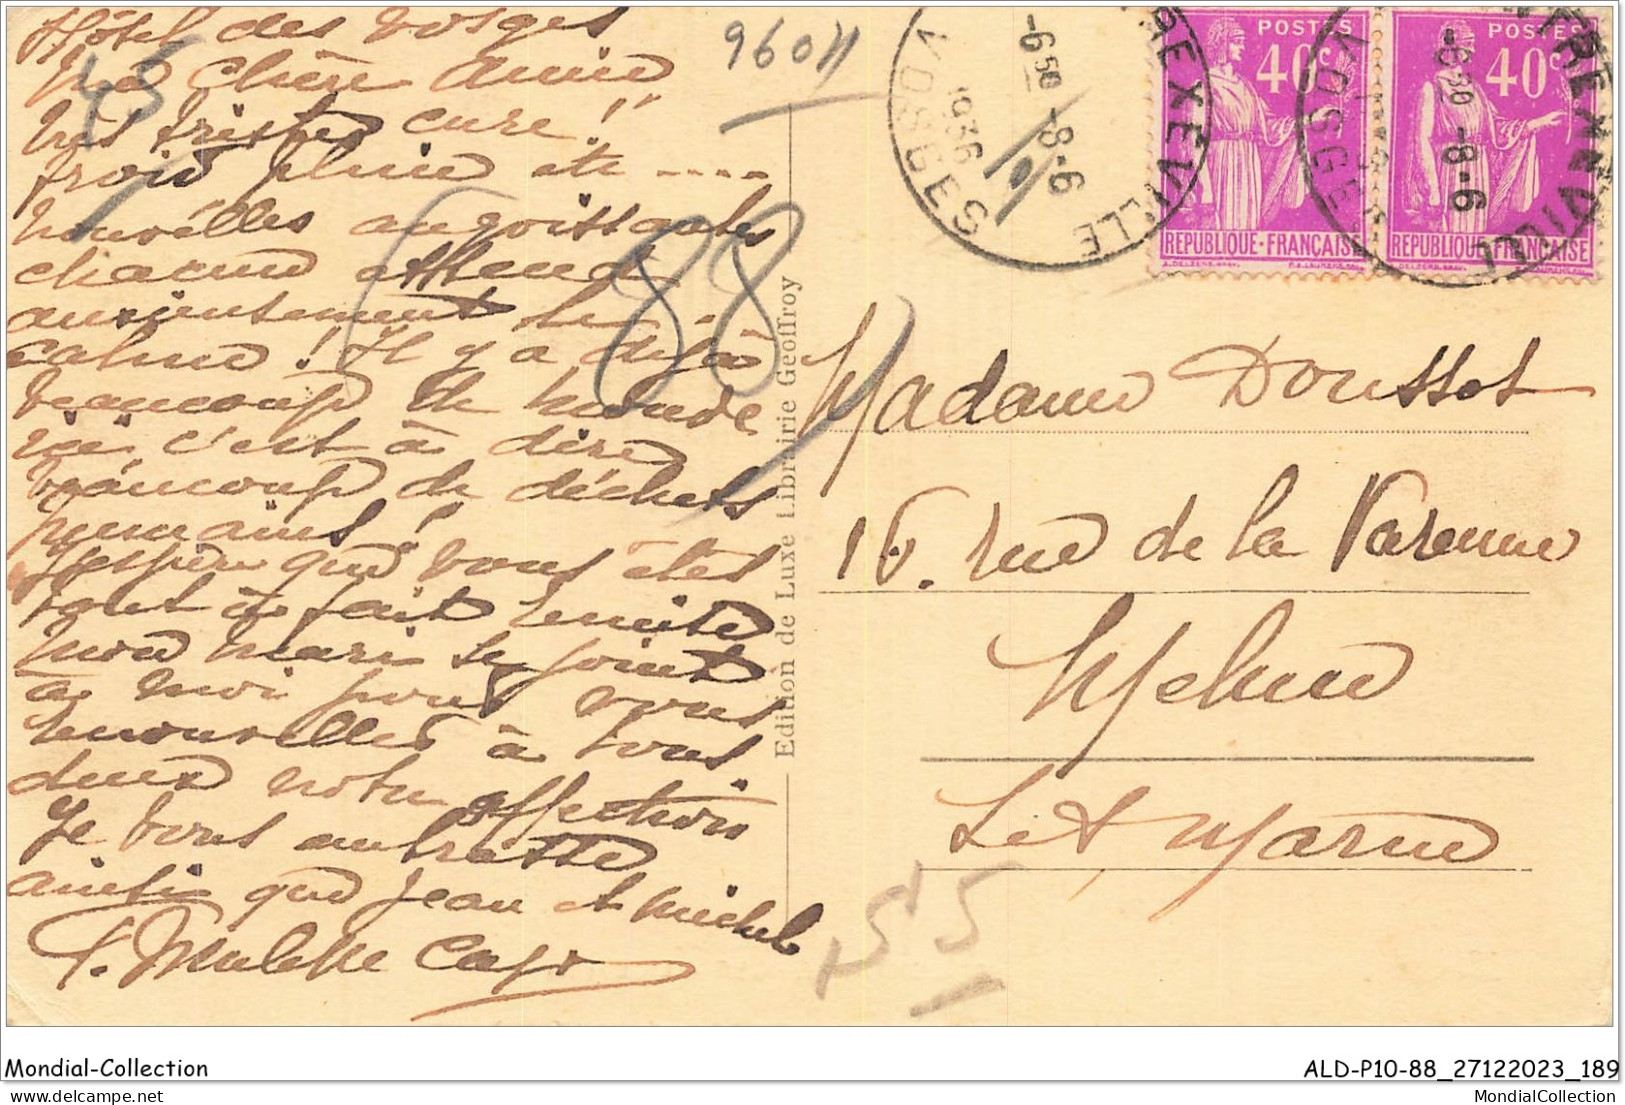 Hôtel des Vosges
Ma Chère Amie,
très triste cure !
froid pluie etc ....
nouvelles angoissantes
chacun attend
anxieusement le
calme ! Il y a déjà
beaucoup de monde
ici c'est à dire
beaucoup de déchets
humains !
J'espère que vous êtes
tout à fait remise
mon mari se joint
à moi pour vous
renouveller à tous
deux notre affection
Je vous embrasse
ainsi que Jean et Michel
45
88
9604
VOSGES
1936
-6 50
-8-6
CONTREXEVILLE
POSTES POSTES
40c 40c
REPUBLIQUE·FRANÇAISE REPUBLIQUE FRANÇAISE
VOSGES
-6 50 -8-6
CONTREXEVILLE
Edition de Luxe Librairie Geoffroy
Madame Doussot
16. rue de la Varenne
Melun
S et Marne
Mondial-Collection
ALD-P10-88_27122023_189
MondialCollection